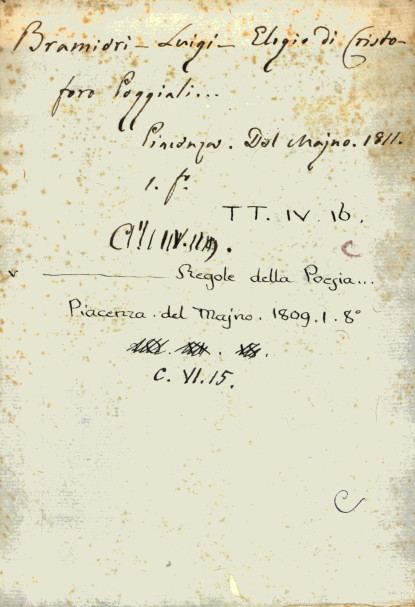 Bramieri – Luigi – Elogio di Cristo-
foro Poggiali...
Piacenza. Del Majno. 1811.
1. f.°
TT. IV. 16.
C
v ———— Regole della Poesia...
Piacenza. del Majno. 1809. 1. 8°
C. VI. 15.
C